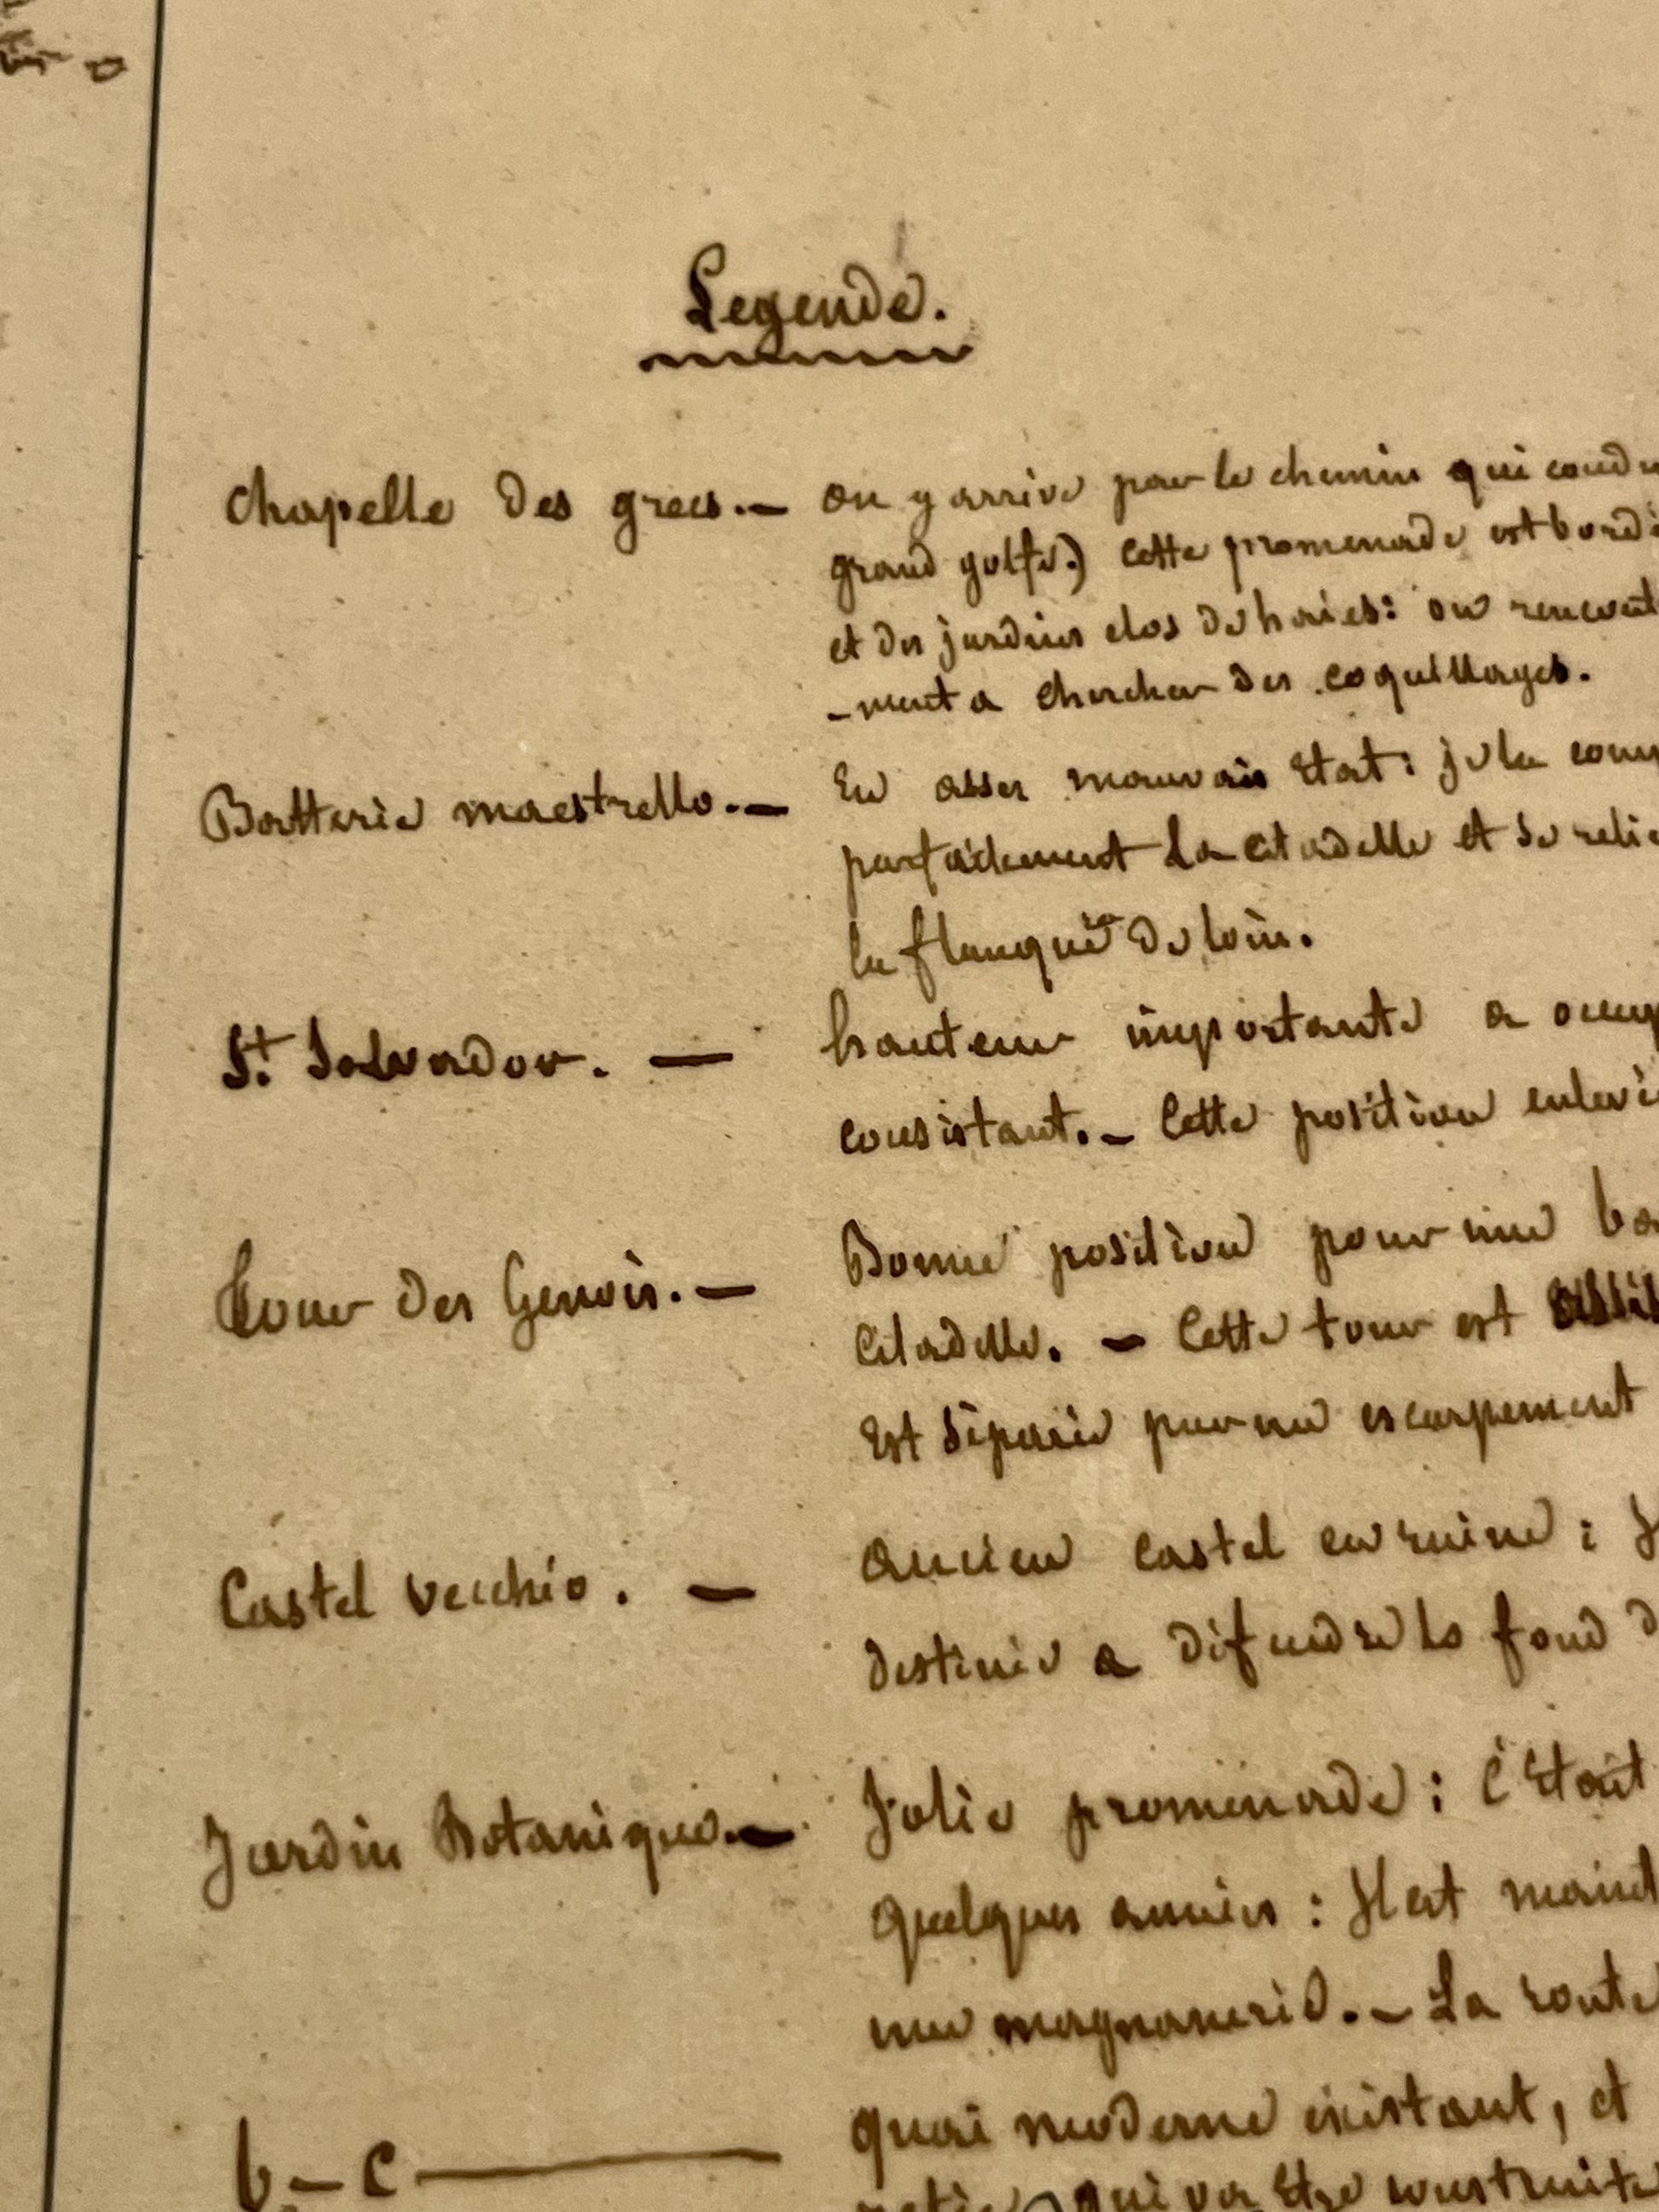 Legende.
Chapelle des grecs. — on y arrive par le chemin qui condu
grand golfe.) Cette promenade est bordé
et des jardins clos de haies: on rencont
-ment a chercher des coquillages.
Batterie maestrello. — En assez mauvais Etat: je la
parfaitement La citadelle et se relie
la flanque de loin.
St. Salvador. — hauteur importante a occup
consistant. — Cette position enlevé
Tour des Genois. — Bonne position pour une ba
Citadelle. — Cette tour est assis
Est séparée par un escarpement
Castel vecchio. — ancien castel en ruine: Il
destiné a défendre le fond d
Jardin Botanique. — Jolie promenade: C'Etait
quelques années: Il est maint
une magnanerie. — La route
b — c — quai moderne existant, et
qui va Etre construite